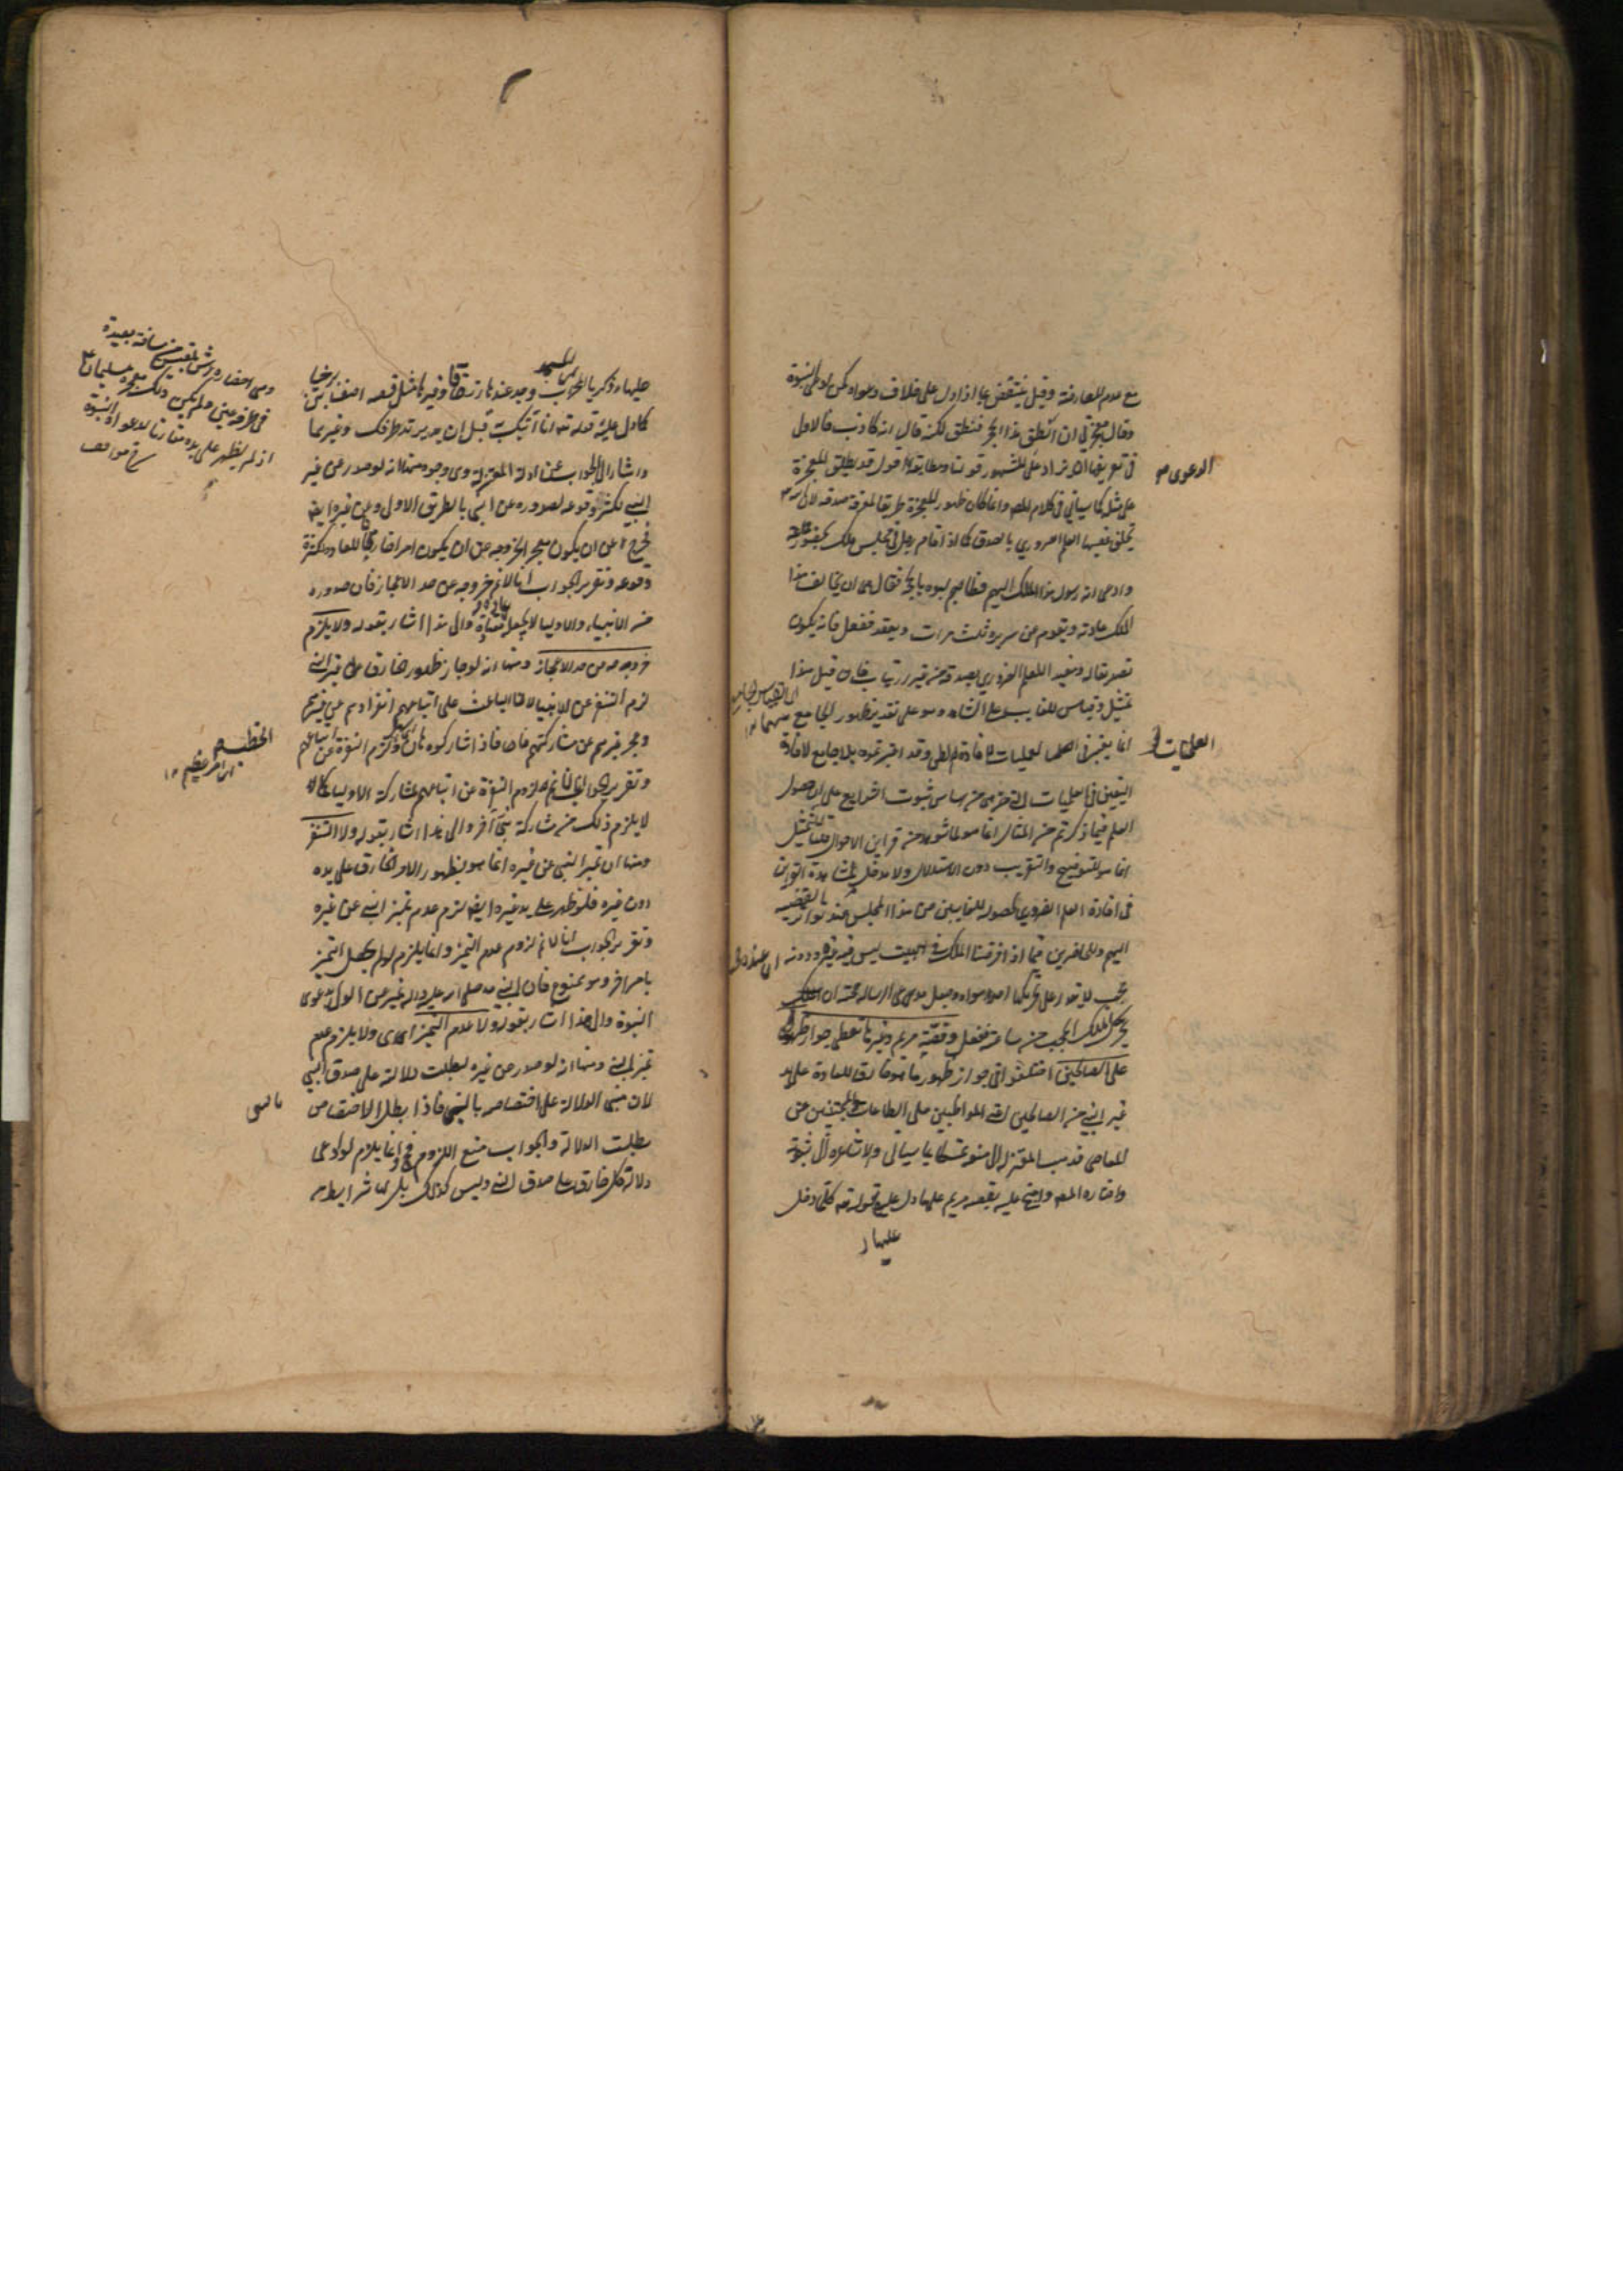 مع عدم المعارضة وقيل ينتقض بما اذا دل على خلاف دعواه كمن ادعى النبوة
وقال معجزتي ان انطق هذا الحجر فنطق لكنه قال انه كاذب فالاولى
في تعريفها ان يزاد على المشهور قولنا ومطابقة اقول قد يطلق المعجزة
الدعوى
على مثله كما سيأتي في كلام المص وانما كان ظهور المعجزة طريقا لمعرفة صدقه لان الله
يخلق عقيبها العلم الضروري بالصدق كما اذا قام رجل في مجلس ملك بحضور جماعة
وادعى انه رسول هذا الملك اليهم فطالبوه بالحجة فقال هي ان يخالف هذا
الملك عادته ويقوم عن سريره ثلث مرات ويقعد ففعل فانه يكون
تصديقا له ومفيدا للعلم الضروري بصدقه من غير ارتياب فان قيل هذا
تمثيل وقياس للغايب على الشاهد وهو على تقدير ظهور الجامع
انما يعتبر في العمليات لافادة الظن وقد اعتبرتموه بلا جامع لافادة
العمليات
اليقين في العلميات التي هي اساس ثبوت الشرايع على ان حصول
العلم فيما ذكرتم من المثال انما هو لما شوهد من قراين الاحوال قلنا التمثيل
انما هو للتوضيح والتقريب دون الاستدلال ولا مدخل لمشاهدة القراين
في افادة العلم الضروري لحصوله للغايبين عن هذا المجلس عند تواتر القضية
اليهم وللحاضرين فيما اذا فرضنا الملك في بيت ليس فيه غيره ودونه
حجب لا يقدر على تحريكها احد سواه وجعل مدعي الرسالة حجته ان الملك
يحرك الملك الحجب من ساعته ففعل وقصة مريم وغيرها تعطى جواز ظهورها
على الصالحين اختلفوا في جواز ظهور ما هو خارق للعادة على يد
غير النبي من الصالحين اعني المواظبين على الطاعات المجتنبين عن
المعاصي فذهب المعتزلة الى منعه تمسكا بما سيأتي والاشاعرة الى ثبوته
واختاره المص واحتج عليه بقصة مريم على ما دل عليه قوله تعالى كلما دخل
عليها ز
عليها زكريا المحراب وجد عندها رزقا وغيرها مثل قصة اصف بن برخيا
كما دل عليه قوله تعالى انا اتيك به قبل ان يرتد اليك طرفك وغيرهما
واشار الى الجواب عن ادلة المعتزلة وهي وجوه منها انه لو صدر عن غير
النبي لكثر وقوعه لصدوره عن النبي بالطريق الاولى وعن غيره ايضا
فخرج عن ان يكون معجزا لخروجه عن ان يكون امرا خارقا للعادة لكثرة
وقوعه وتقرير الجواب انا لا نم خروجه عن حد الاعجاز فان صدوره
من الانبياء والاولياء لا يجعله عادة والى هذا اشار بقوله ولا يلزم
خروجه عن حد الاعجاز ومنها انه لو جاز ظهور خارق على غير النبي
لزم التنفر عن الانبياء لان الباعث على اتباعهم انفرادهم عن غيرهم
وعجز غيرهم عن مشاركتهم فيها فاذا شاركوه هان ولزم النفرة عن اتباعهم
الخطب
اي امر عظيم ١٢
وتقرير الجواب انا لا نم لزوم النفرة عن اتباعهم لمشاركة الاولياء كما
لا يلزم ذلك من مشاركة نبي آخر والى هذا اشار بقوله ولا التنفر
ومنها ان تميز النبي عن غيره انما هو بظهور الامر الخارق على يده
دون غيره فلو ظهر على يد غيره ايضا لزم عدم تميز النبي عن غيره
وتقرير الجواب انا لا نم لزوم عدم التميز وانما يلزم لو لم يحصل التميز
بامر اخر وهو ممنوع فان النبي صلى الله عليه واله تميز عن الولي بدعوى
النبوة والى هذا اشار بقوله ولا عدم التميز اي ولا يلزم عدم
تميز النبي ومنها انه لو صدر عن غيره لبطلت دلالته على صدق النبي
لان مبنى الدلالة على اختصاصه بالنبي فاذا بطل الاختصاص
بطلت الدلالة والجواب منع اللزوم وانما يلزم لو ادعى
دلالة كل خارق على صدق النبي وليس كذلك بل لها شرايط
وهي احضاره عرش بلقيس من مسافة بعيدة
في طرفة عين ولم يكن ذلك معجزة سليمان ع
اذ لم يظهر على يده مقارنا لدعواه النبوة
شرح مواقف